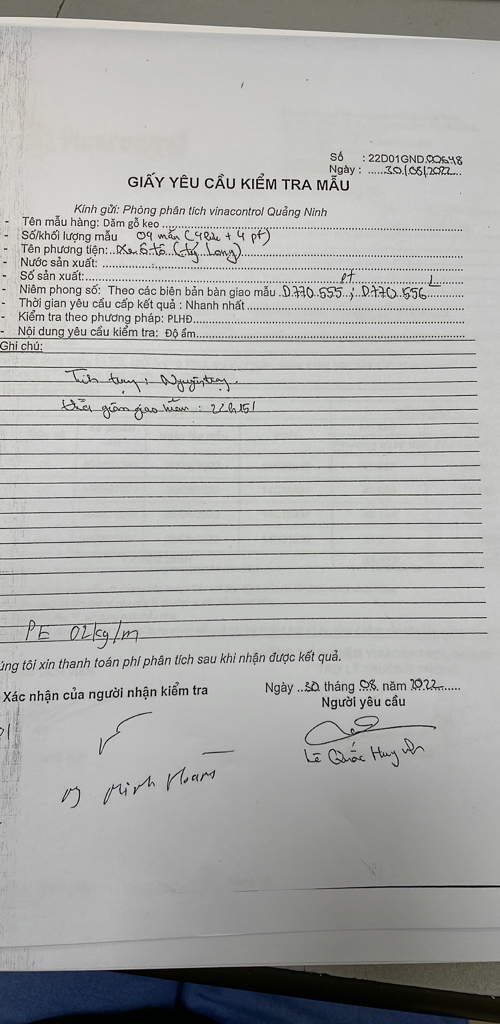 Số : 22D01GND.00648
Ngày : .....30/08/2022...
GIẤY YÊU CẦU KIỂM TRA MẪU
Kính gửi: Phòng phân tích vinacontrol Quảng Ninh
- Tên mẫu hàng: Dăm gỗ keo
- Số/khối lượng mẫu 04 mẫu (4 lưu + 4 pt)
- Tên phương tiện: Xe ô tô (Kỳ Long)
- Nước sản xuất:
- Số sản xuất:
pt L
- Niêm phong số: Theo các biên bản bàn giao mẫu D770.555 ; D770.556
- Thời gian yêu cầu cấp kết quả : Nhanh nhất
- Kiểm tra theo phương pháp: PLHĐ
- Nội dung yêu cầu kiểm tra: Độ ẩm
Ghi chú:
Tình trạng : Nguyên trạng.
Thời gian giao mẫu : 22h15'
PE 02kg/m
úng tôi xin thanh toán phí phân tích sau khi nhận được kết quả.
Xác nhận của người nhận kiểm tra
Ngày ..30. tháng 08. năm 2022......
Người yêu cầu
Lê Quốc Huy
Minh